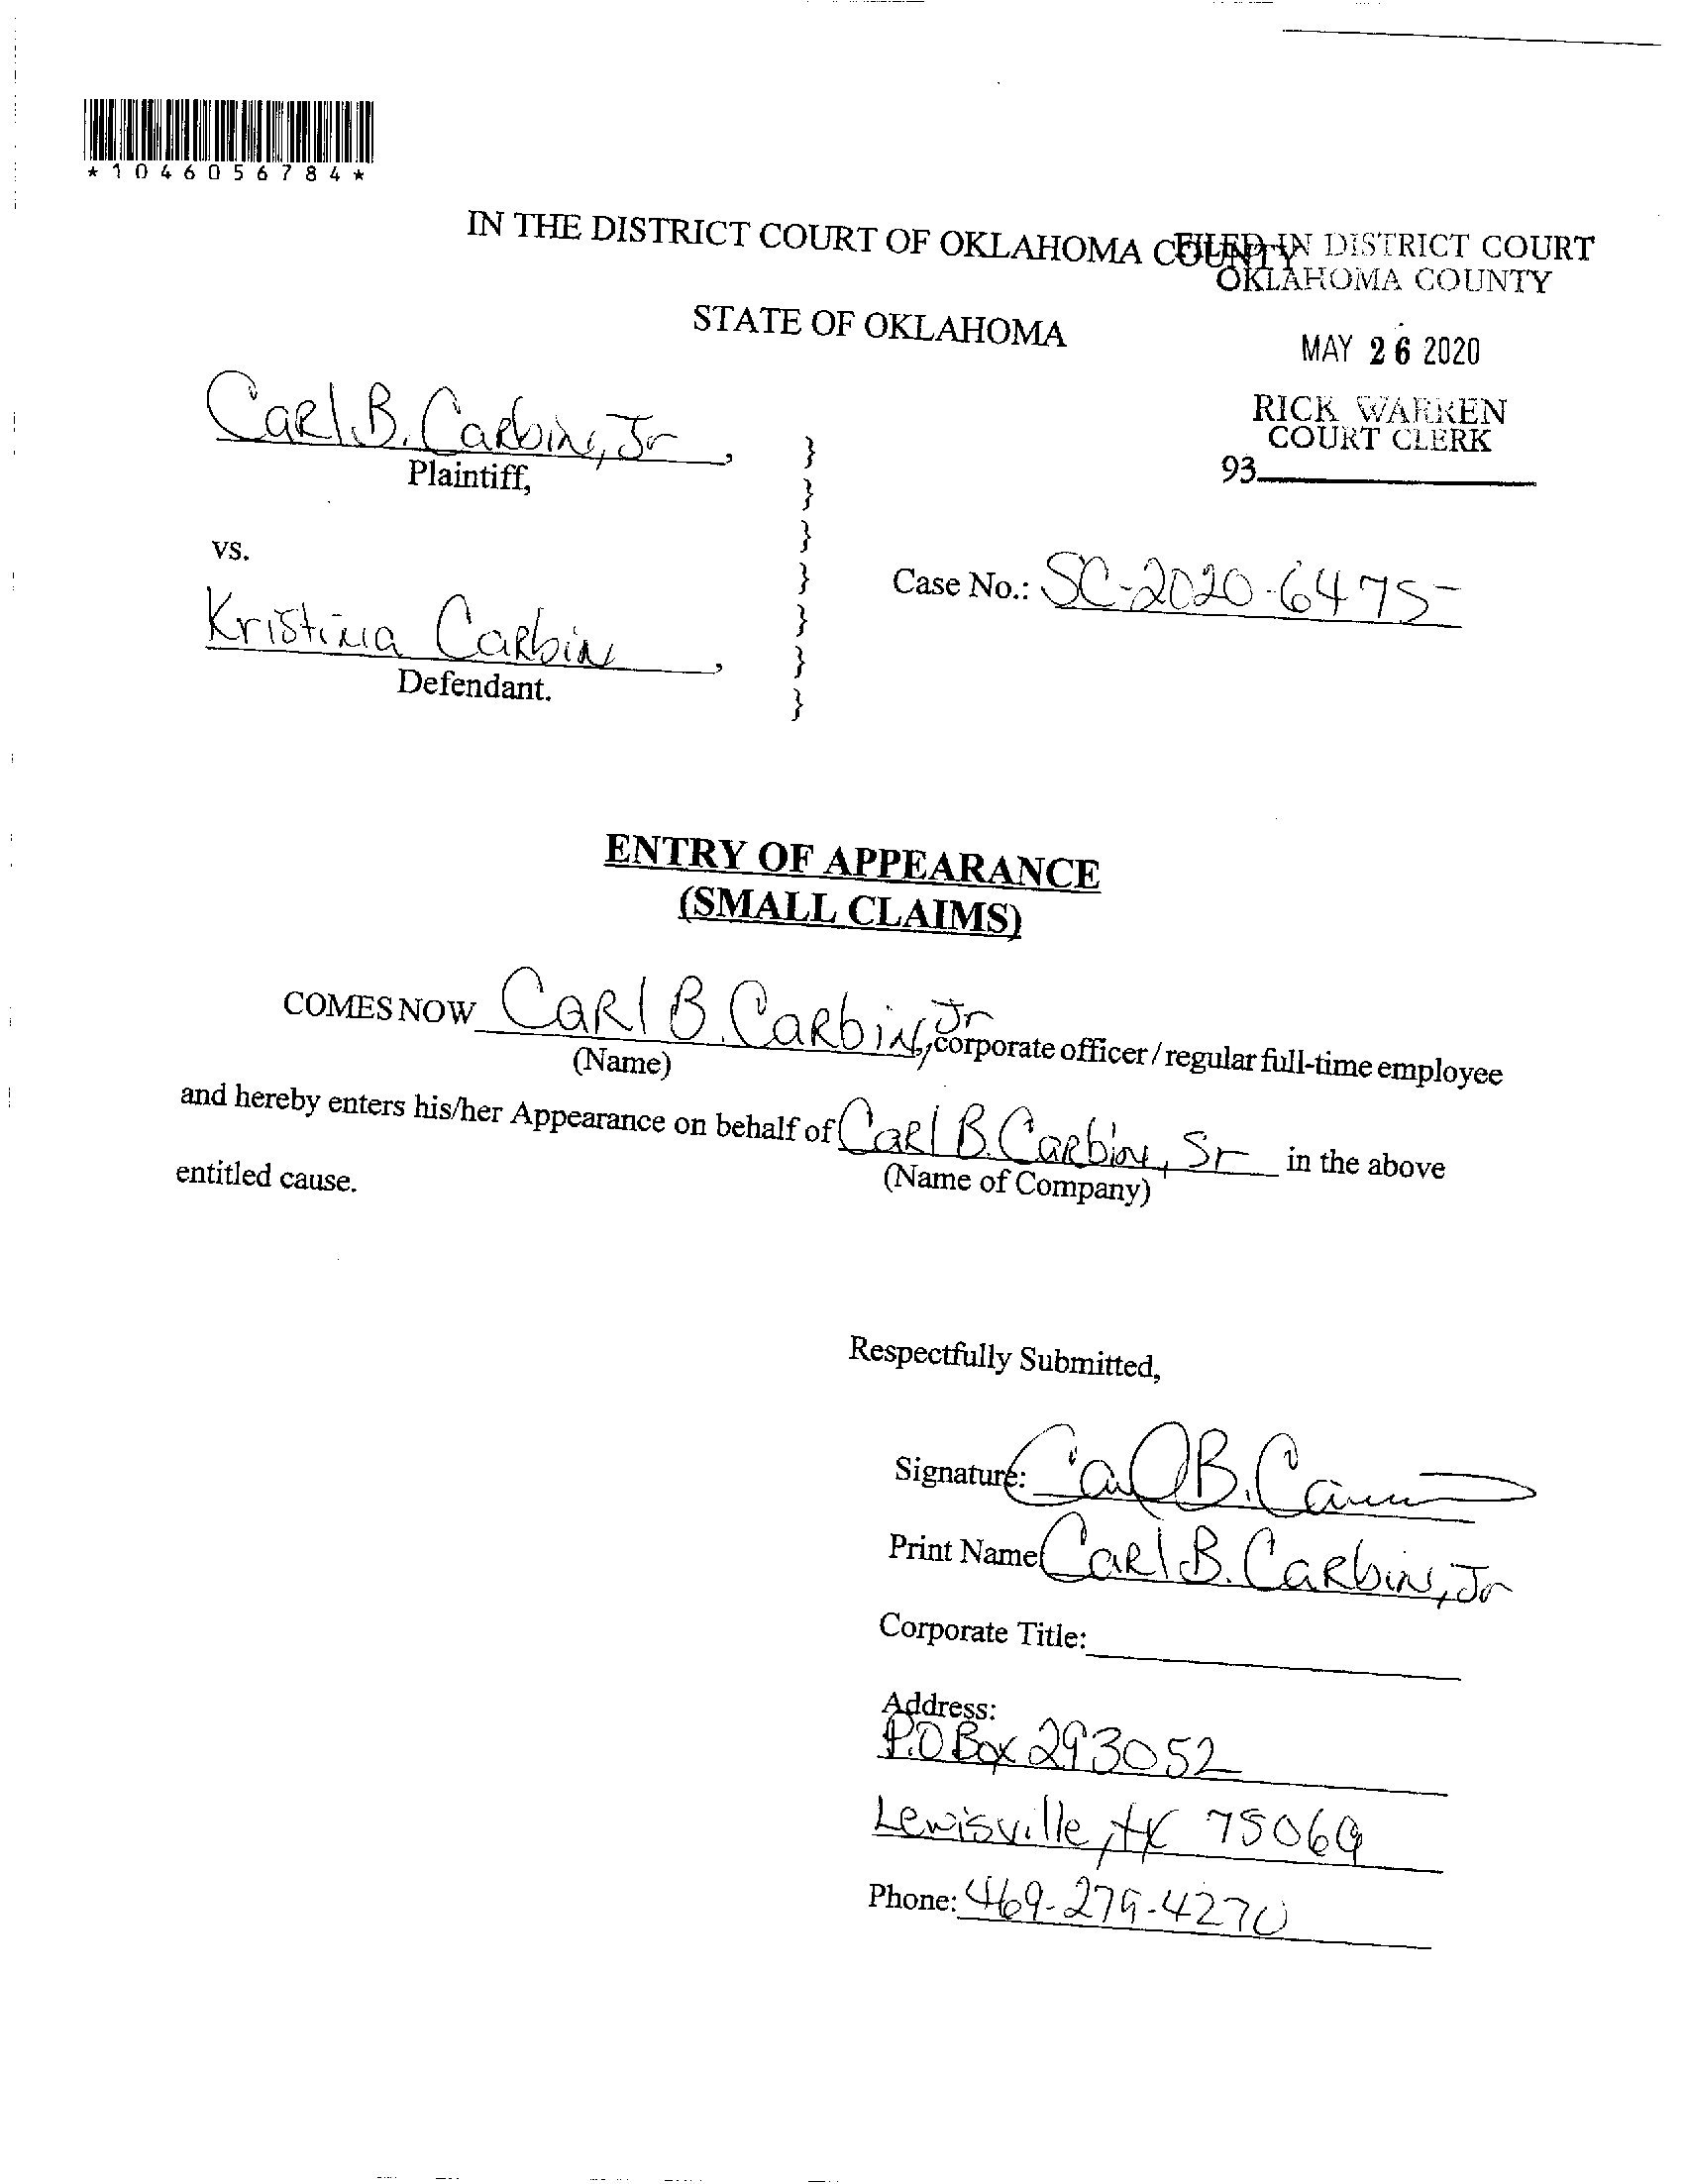 *1046056784*
IN THE DISTRICT COURT OF OKLAHOMA COUNTY
FILED IN DISTRICT COURT
OKLAHOMA COUNTY
STATE OF OKLAHOMA
MAY 26 2020
RICK WARREN
COURT CLERK
93
Carl B. Carbin, Jr,
Plaintiff,
vs.
Case No.: SC-2020-6475
Kristina Carbin,
Defendant.
ENTRY OF APPEARANCE
(SMALL CLAIMS)
COMES NOW Carl B. Carbin, Jr, corporate officer / regular full-time employee
(Name)
and hereby enters his/her Appearance on behalf of Carl B. Carbin, Sr in the above
(Name of Company)
entitled cause.
Respectfully Submitted,
Signature: Carl B. Carbin
Print Name Carl B. Carbin, Jr
Corporate Title:
Address:
P.O Box 293052
Lewisville, tx 75069
Phone: 469-279-4270